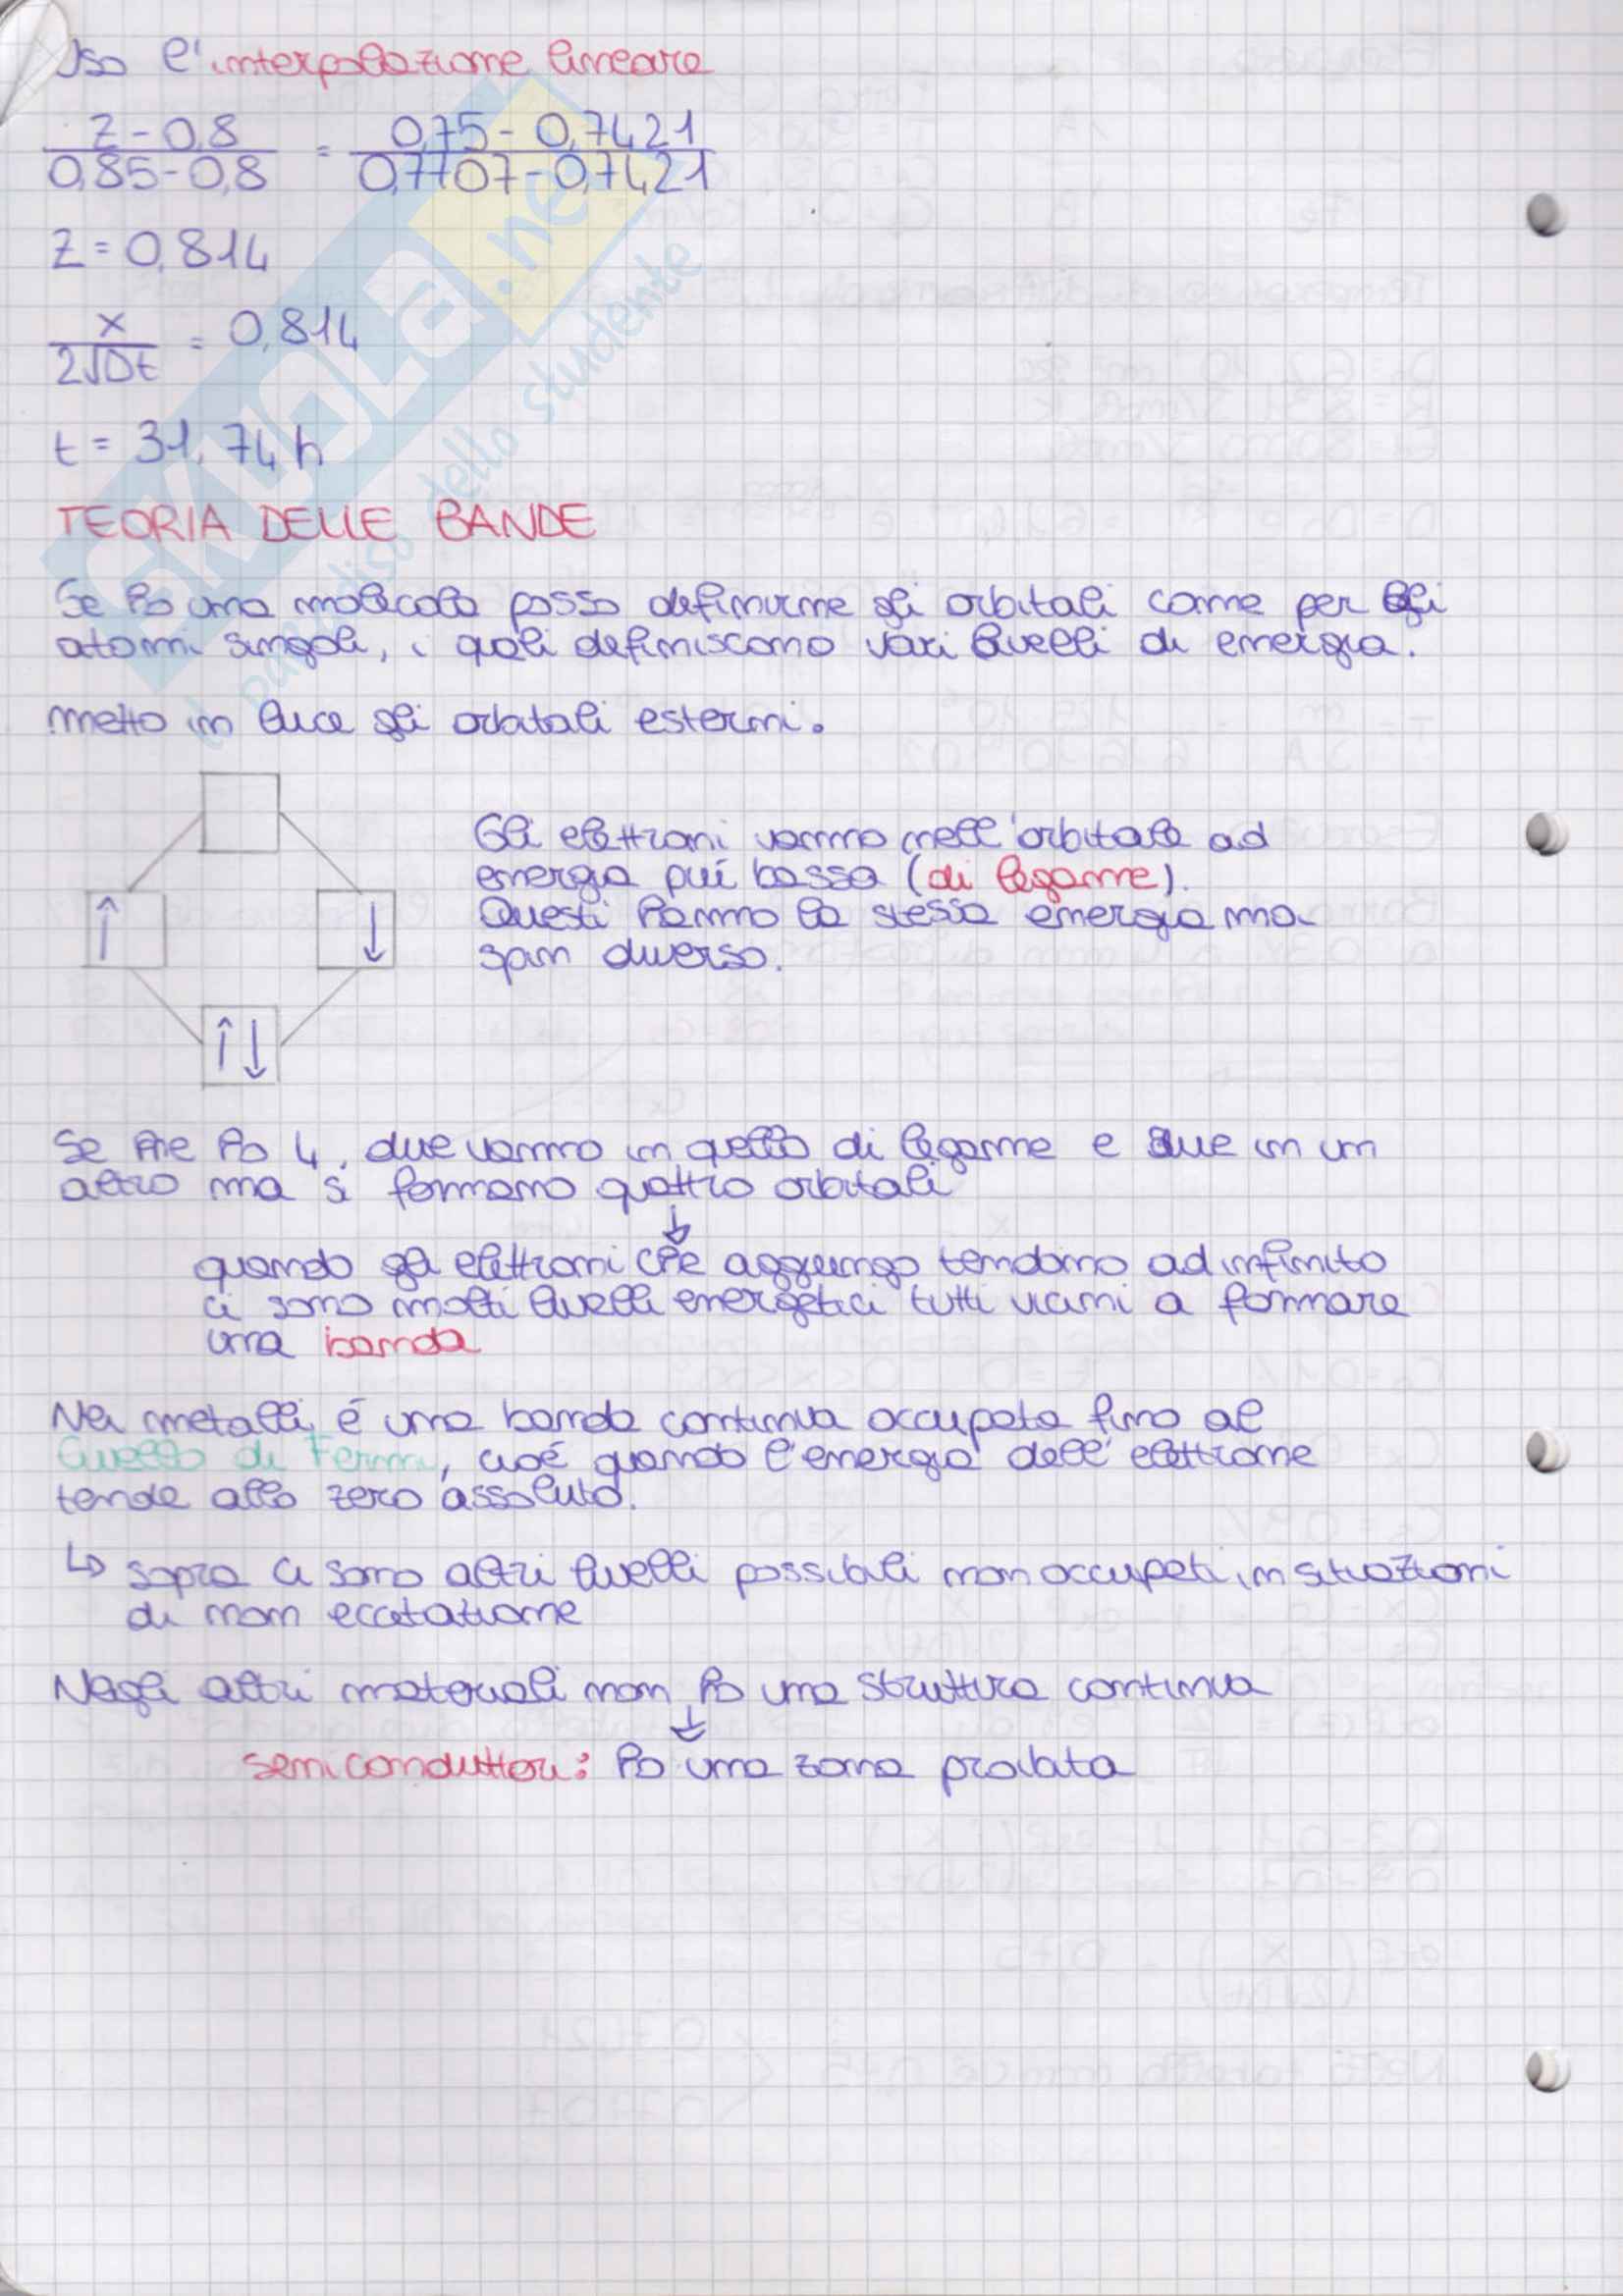 Uso l'interpolazione lineare
Z - 0,8 / 0,85 - 0,8 = 0,75 - 0,7421 / 0,7707 - 0,7421
Z = 0,814
x / 2√Dt = 0,814
t = 31,74 h
TEORIA DELLE BANDE
Se ho una molecola posso definirne gli orbitali come per gli
atomi singoli, i quali definiscono vari livelli di energia.
metto in luce gli orbitali esterni.
Gli elettroni vanno nell'orbitale ad
energia piú bassa (di legame).
Questi hanno la stessa energia ma
spin diverso.
↑
↓
↑↓
Se ne ho 4, due vanno in quello di legame e due in un
altro ma si formano quattro orbitali
↓
quando gli elettroni che aggiungo tendono ad infinito
ci sono molti livelli energetici tutti vicini a formare
una banda
Nei metalli é una banda continua occupata fino al
livello di Fermi, cioé quando l'energia dell'elettrone
tende allo zero assoluto.
↳ sopra ci sono altri livelli possibili non occupati in situazioni
di non eccitazione
Negli altri materiali non ho una struttura continua
↓
semiconduttori: ho una zona proibita
SKUOLA.net
il paradiso dello studente